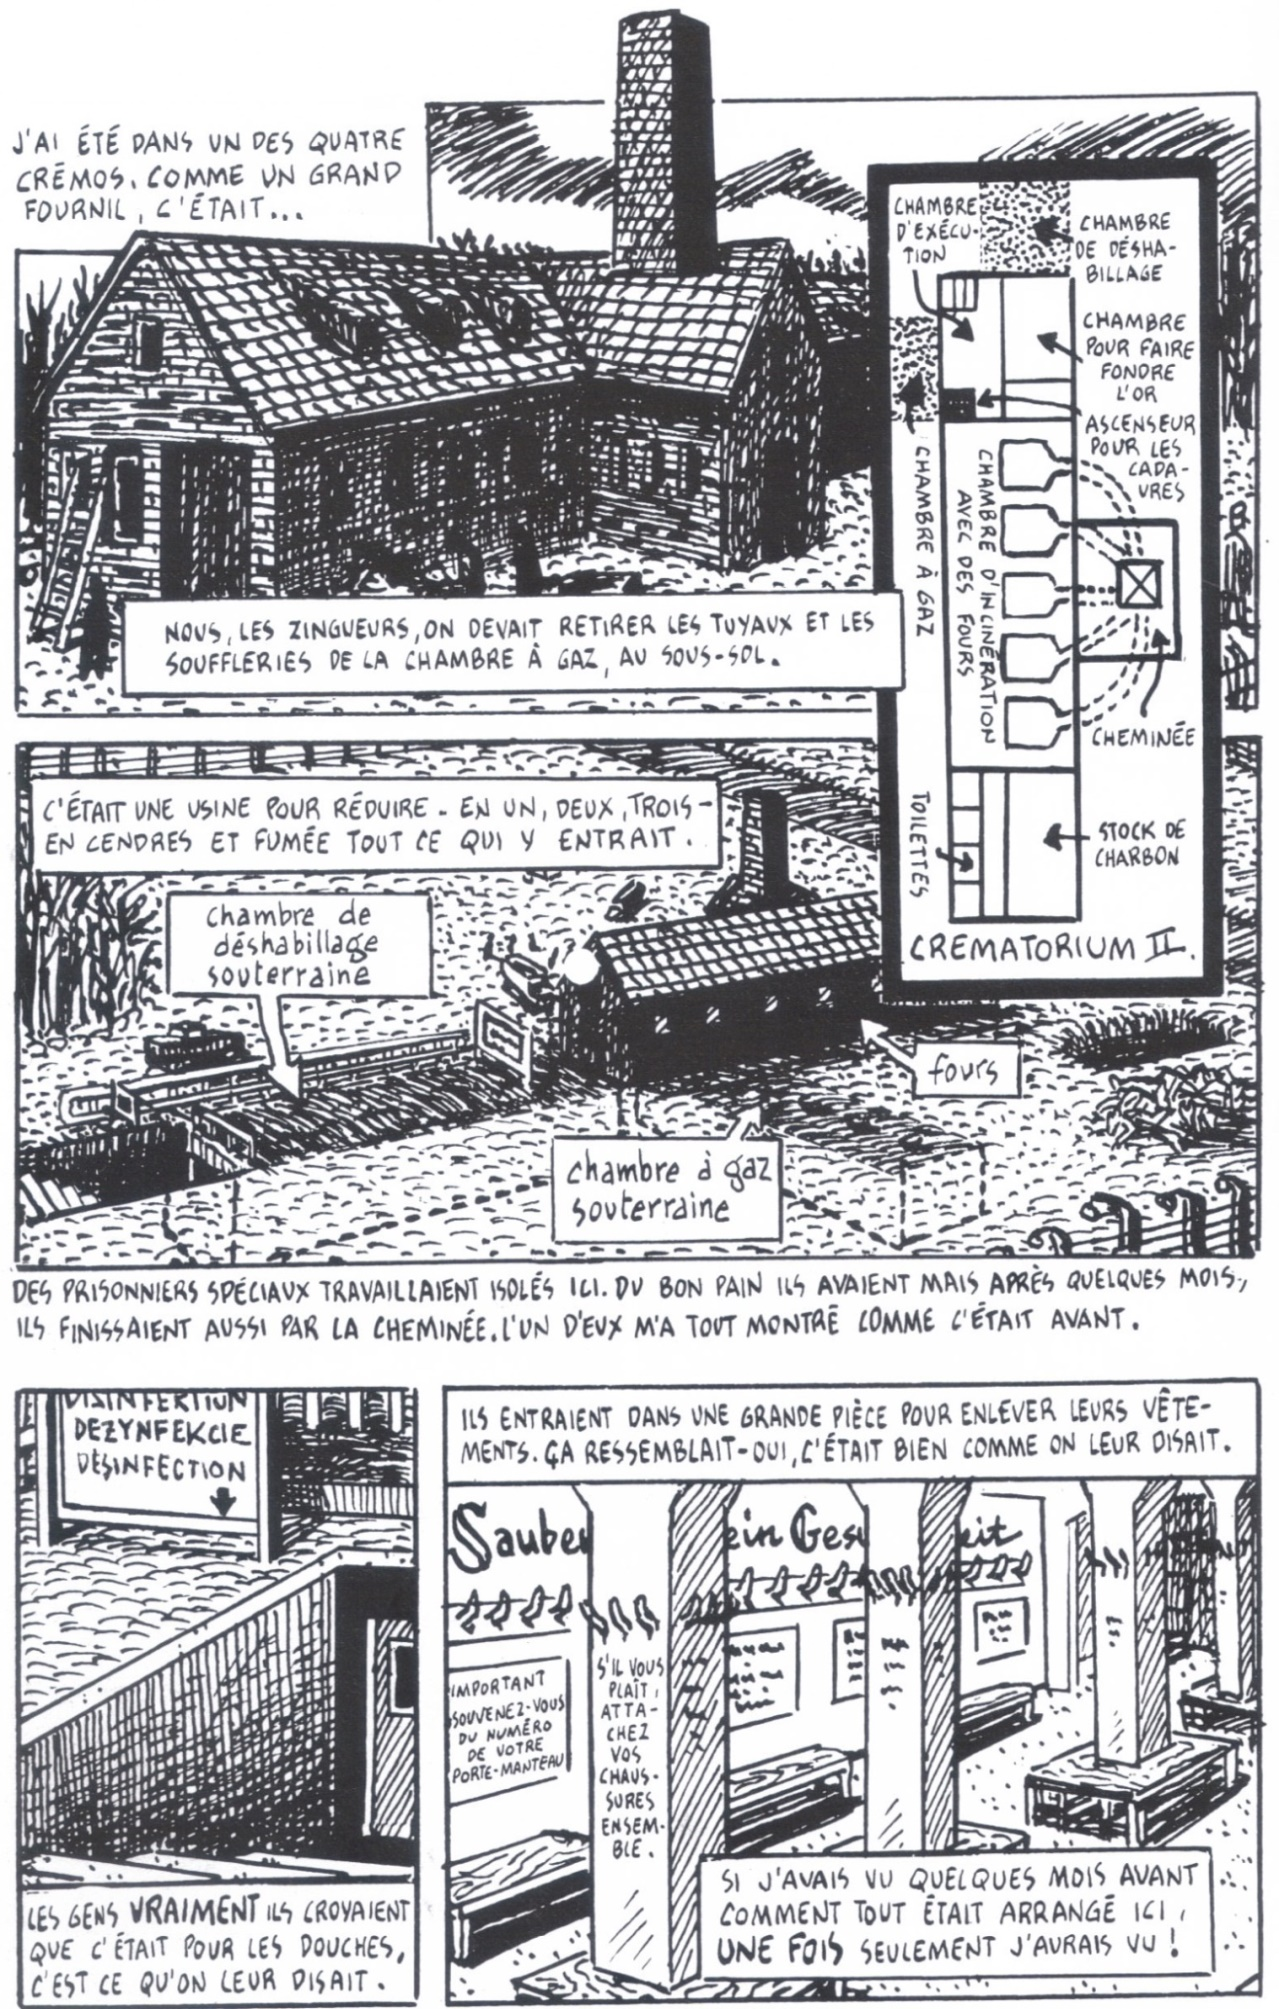 J'AI ÉTÉ DANS UN DES QUATRE
CRÉMOS. COMME UN GRAND
FOURNIL, C'ÉTAIT...
CHAMBRE
D'EXÉCU-
TION
CHAMBRE
DE DÉSHA-
BILLAGE
CHAMBRE
POUR FAIRE
FONDRE
L'OR
ASCENSEUR
POUR LES
CADA-
VRES
CHAMBRE À GAZ
CHAMBRE D'INCINÉRATION
AVEC DES FOURS
CHEMINÉE
TOILETTES
STOCK DE
CHARBON
CREMATORIUM II.
NOUS, LES ZINGUEURS, ON DEVAIT RETIRER LES TUYAUX ET LES
SOUFFLERIES DE LA CHAMBRE À GAZ, AU SOUS-SOL.
C'ÉTAIT UNE USINE POUR RÉDUIRE - EN UN, DEUX, TROIS -
EN CENDRES ET FUMÉE TOUT CE QUI Y ENTRAIT.
chambre de
déshabillage
souterraine
fours
chambre à gaz
souterraine
DES PRISONNIERS SPÉCIAUX TRAVAILLAIENT ISOLÉS ICI. DU BON PAIN ILS AVAIENT MAIS APRÈS QUELQUES MOIS,
ILS FINISSAIENT AUSSI PAR LA CHEMINÉE. L'UN D'EUX M'A TOUT MONTRÉ COMME C'ÉTAIT AVANT.
DISINFEKTION
DEZYNFEKCJE
DÉSINFECTION
LES GENS VRAIMENT ILS CROYAIENT
QUE C'ÉTAIT POUR LES DOUCHES,
C'EST CE QU'ON LEUR DISAIT.
ILS ENTRAIENT DANS UNE GRANDE PIÈCE POUR ENLEVER LEURS VÊTE-
MENTS. ÇA RESSEMBLAIT - OUI, C'ÉTAIT BIEN COMME ON LEUR DISAIT.
Saube ein Ges eit
IMPORTANT
SOUVENEZ-VOUS
DU NUMÉRO
DE VOTRE
PORTE-MANTEAU
S'IL VOUS
PLAÎT,
ATTA-
CHEZ
VOS
CHAUS-
SURES
ENSEM-
BLE.
SI J'AVAIS VU QUELQUES MOIS AVANT
COMMENT TOUT ÉTAIT ARRANGÉ ICI,
UNE FOIS SEULEMENT J'AURAIS VU !